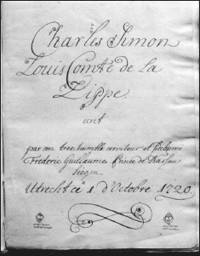 Charles Simon
Louis Comte de la
Lippe
par son tres humble serviteur et
Frederic Guiljaume Prince de Nassau
Siegen
Utrecht ce 1 d'Octobre 1720